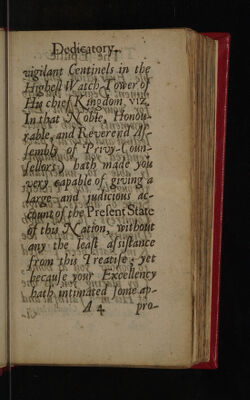 Dedicatory.
vigilant Centinels in the
Highest Watch-Tower of
His chief Kingdom, viz.
In that Noble, Honou-
rable, and Reverend As-
sembly of Privy-Coun-
sellors, hath made you
very capable of giving a
large and judicious ac-
count of the Present State
of this Nation, without
any the least assistance
from this Treatise; yet
because your Excellency
hath intimated some ap-
A 4 pro-